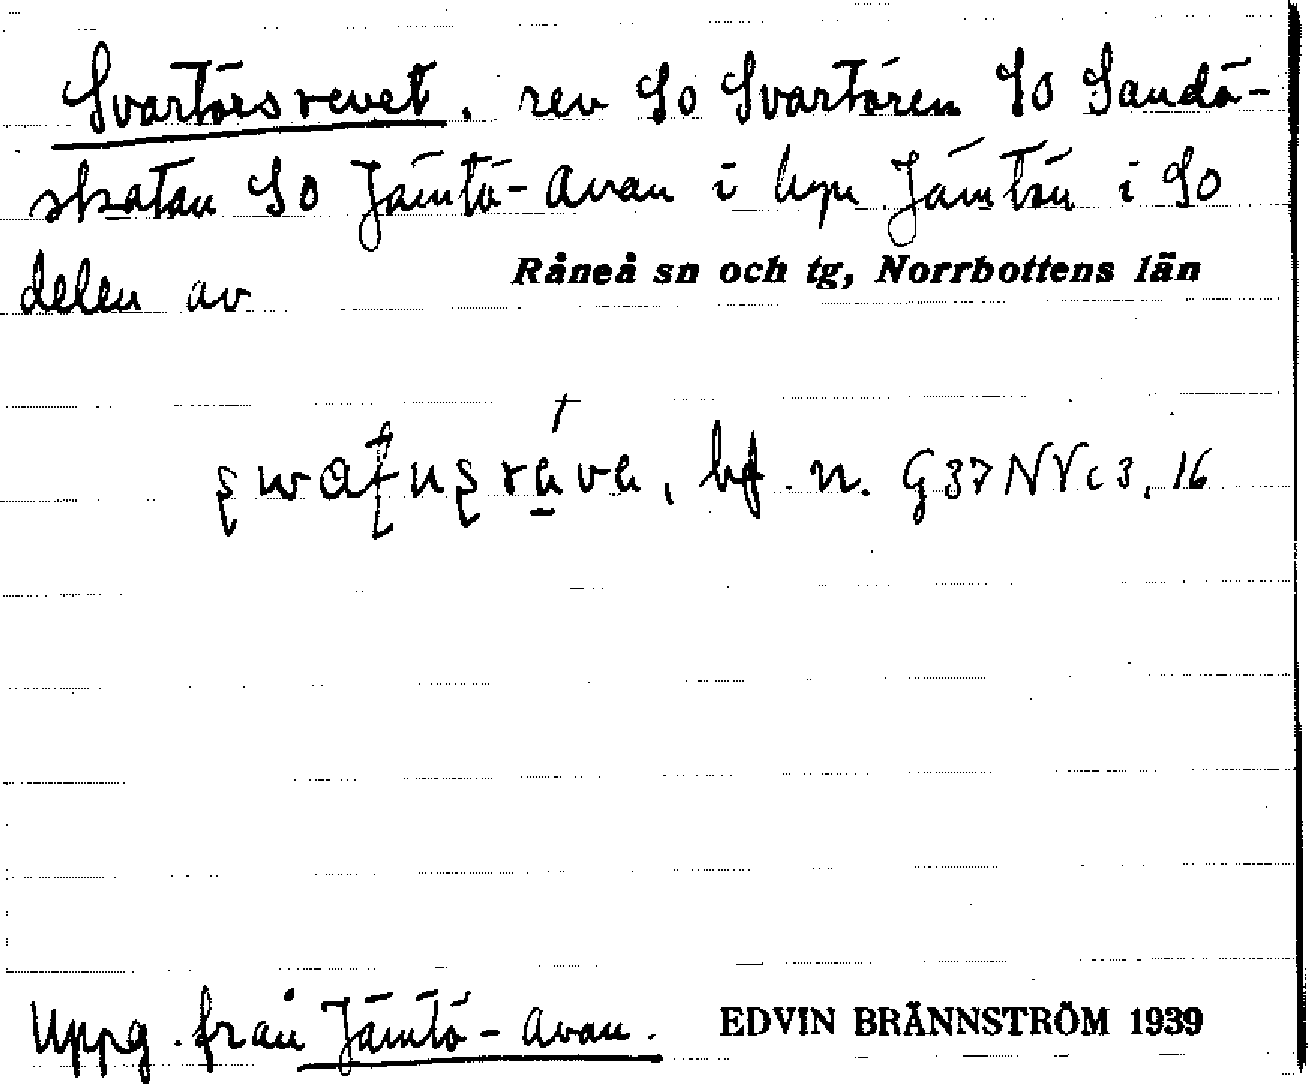 Svartörsrevet, rev SO Svartören SO Sandö-
skatan SO Jämtö-Avan i byn Jämtön i SO
delen av Råneå sn och tg, Norrbottens län
bf. n. G37NVc3, 16
Uppg. från Jämtö-Avan. EDVIN BRÄNNSTRÖM 1939